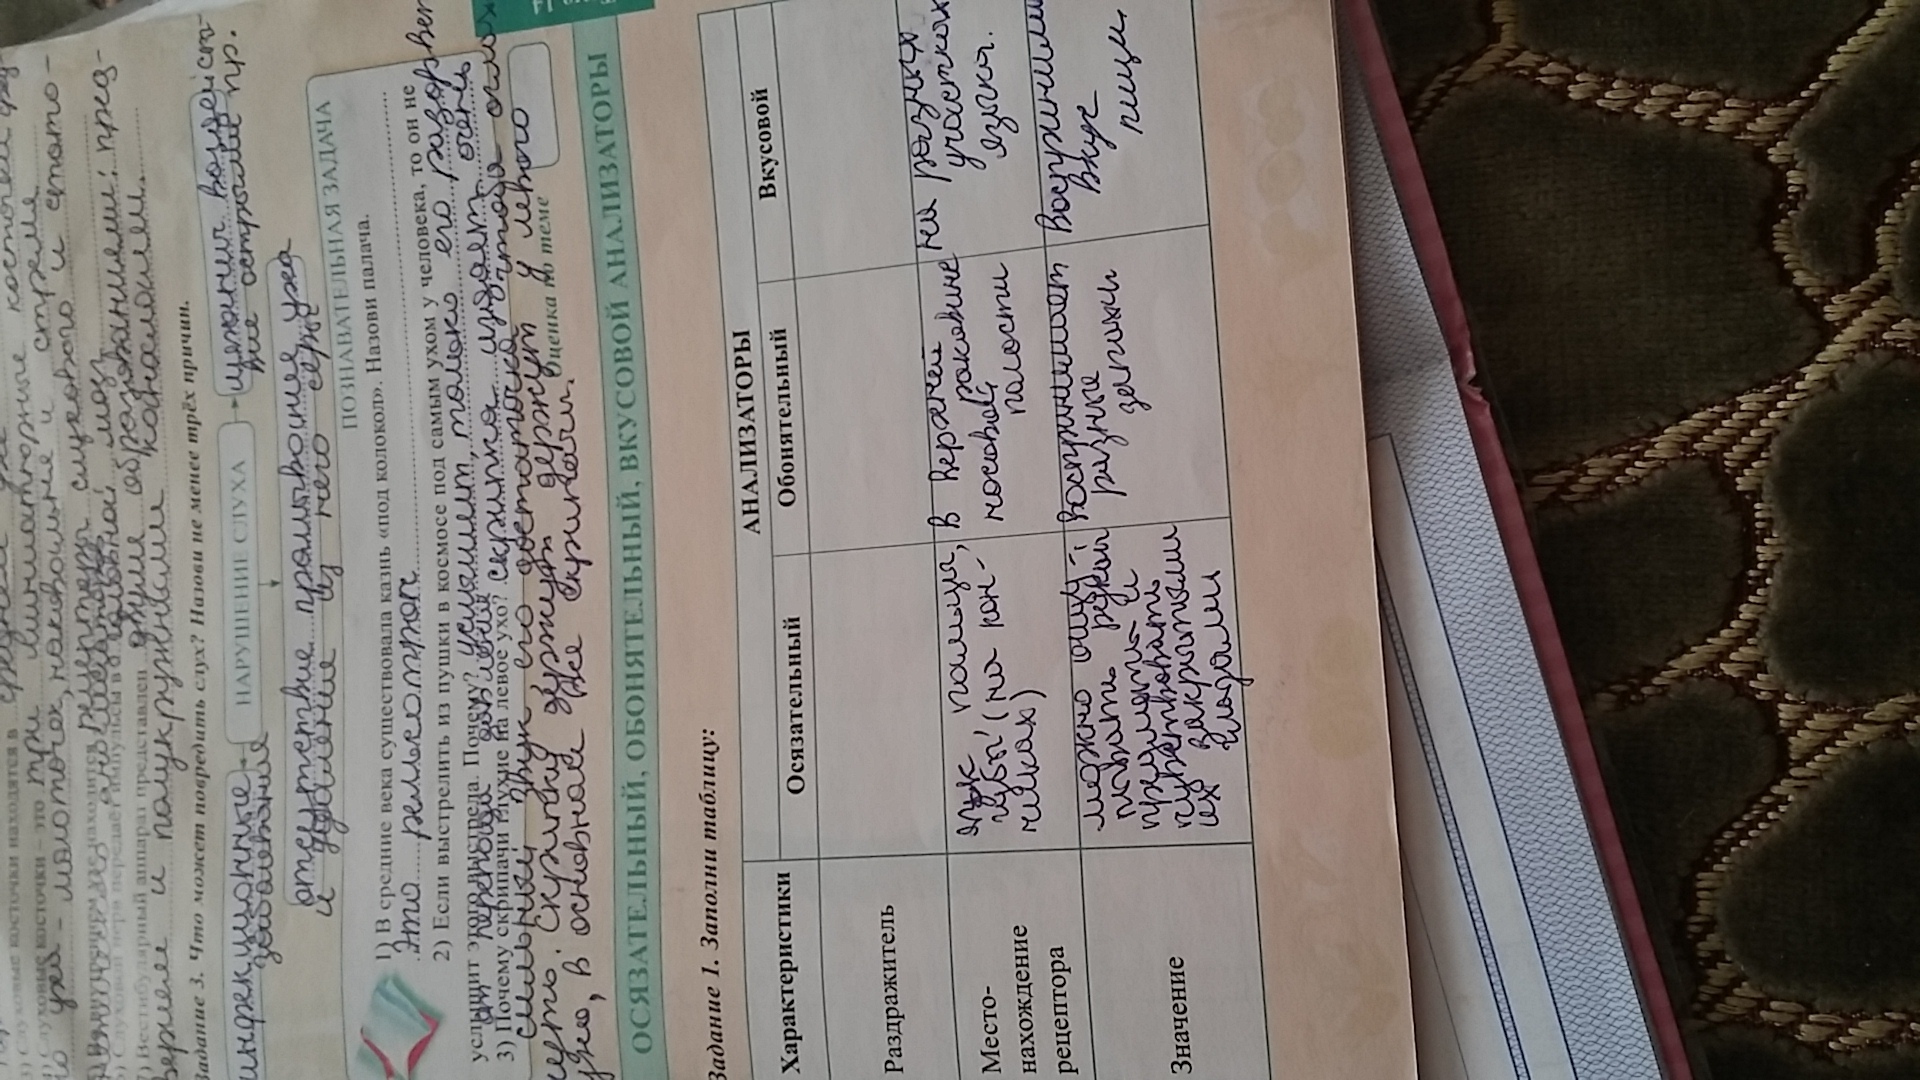 3) Слуховые косточки находятся в среднем ухе
4) Слуховые косточки – это три миниатюрные косточки сред-
го уха – молоточек, наковальня и стремя
5) Во внутреннем ухе находится рецепторы слухового и стато-
6) Слуховой нерв передаёт импульсы в головной мозг
7) Вестибулярный аппарат представлен двумя образованиями: пред-
верием и полукружными каналами.
Задание 3. Что может повредить слух? Назови не менее трёх причин.
инфекционные заболевания
НАРУШЕНИЕ СЛУХА
механич воздейст-
вие острыми пр.
отсутствие промывание уха
и удаление из него серы
ПОЗНАВАТЕЛЬНАЯ ЗАДАЧА
1) В средние века существовала казнь «под колокол». Назови палача.
Это
2) Если выстрелить из пушки в космосе под самым ухом у человека, то он не
услышит этого выстрела. Почему? услышит, только его разорвет
от перепада давления
3) Почему скрипачи глухие на левое ухо? скрипка издаёт очень
сильный звук, его достаточно чтоба оглох
нуть. Скрипку держут держут у левого
уха, в основном все скрипачи.
Оценка по теме
ОСЯЗАТЕЛЬНЫЙ, ОБОНЯТЕЛЬНЫЙ, ВКУСОВОЙ АНАЛИЗАТОРЫ
Задание 1. Заполни таблицу:
Характеристики
АНАЛИЗАТОРЫ
Осязательный
Обонятельный
Вкусовой
Раздражитель
Место-
нахождение
рецептора
язык, пальцы,
губы (на кон-
чиках)
в верхней
раковине
носовой
полости
на разных
участках
языка.
Значение
можно ощу-
пывать рукой
предметы и
чувствовать
их закрытыми
глазами
воспринимает
разные
запахи
Воспринима
вкус
пищи